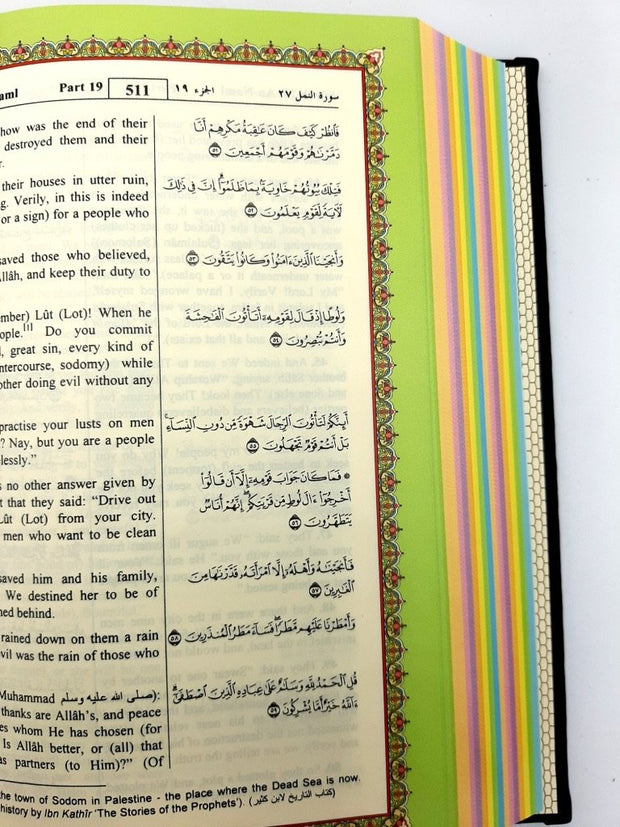 aml Part 19 511 الجزء ١٩ سورة النمل ٢٧
how was the end of their
destroyed them and their
r.
their houses in utter ruin,
g. Verily, in this is indeed
or a sign) for a people who
saved those who believed,
Allâh, and keep their duty to
ember) Lût (Lot)! When he
ople.[1] Do you commit
l, great sin, every kind of
ntercourse, sodomy) while
other doing evil without any
practise your lusts on men
? Nay, but you are a people
lessly."
s no other answer given by
t that they said: "Drive out
Lût (Lot) from your city.
men who want to be clean
saved him and his family,
We destined her to be of
ned behind.
rained down on them a rain
evil was the rain of those who
Muhammad صلى الله عليه وسلم):
thanks are Allâh's, and peace
es whom He has chosen (for
Is Allâh better, or (all) that
as partners (to Him)?" (Of
فَٱنظُرْ كَيْفَ كَانَ عَٰقِبَةُ مَكْرِهِمْ أَنَّا
دَمَّرْنَٰهُمْ وَقَوْمَهُمْ أَجْمَعِينَ ٥١
فَتِلْكَ بُيُوتُهُمْ خَاوِيَةًۢ بِمَا ظَلَمُوٓا۟ إِنَّ فِى ذَٰلِكَ
لَءَايَةً لِّقَوْمٍ يَعْلَمُونَ ٥٢
وَأَنجَيْنَا ٱلَّذِينَ ءَامَنُوا۟ وَكَانُوا۟ يَتَّقُونَ ٥٣
وَلُوطًا إِذْ قَالَ لِقَوْمِهِۦٓ أَتَأْتُونَ ٱلْفَٰحِشَةَ
وَأَنتُمْ تُبْصِرُونَ ٥٤
أَئِنَّكُمْ لَتَأْتُونَ ٱلرِّجَالَ شَهْوَةً مِّن دُونِ ٱلنِّسَآءِ ۚ
بَلْ أَنتُمْ قَوْمٌ تَجْهَلُونَ ٥٥
فَمَا كَانَ جَوَابَ قَوْمِهِۦٓ إِلَّآ أَن قَالُوٓا۟
أَخْرِجُوٓا۟ ءَالَ لُوطٍ مِّن قَرْيَتِكُمْ ۖ إِنَّهُمْ أُنَاسٌ
يَتَطَهَّرُونَ ٥٦
فَأَنجَيْنَٰهُ وَأَهْلَهُۥٓ إِلَّا ٱمْرَأَتَهُۥ قَدَّرْنَٰهَا مِنَ
ٱلْغَٰبِرِينَ ٥٧
وَأَمْطَرْنَا عَلَيْهِم مَّطَرًا ۖ فَسَآءَ مَطَرُ ٱلْمُنذَرِينَ ٥٨
قُلِ ٱلْحَمْدُ لِلَّهِ وَسَلَٰمٌ عَلَىٰ عِبَادِهِ ٱلَّذِينَ ٱصْطَفَىٰٓ ۗ
ءَآللَّهُ خَيْرٌ أَمَّا يُشْرِكُونَ ٥٩
the town of Sodom in Palestine - the place where the Dead Sea is now.
history by Ibn Kathîr 'The Stories of the Prophets'). (كتاب التاريخ لابن كثير)